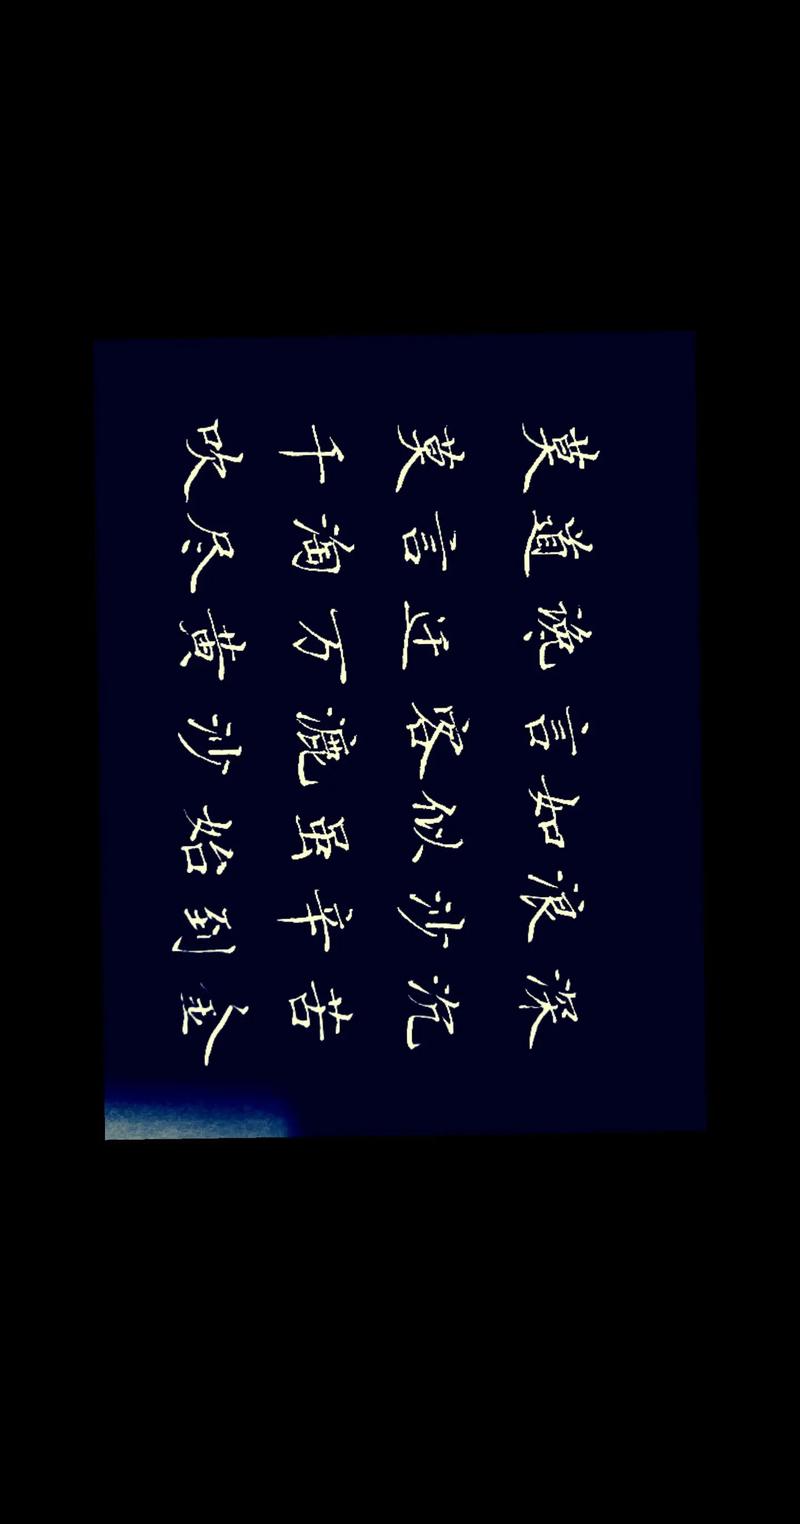 莫道谗言如浪深
莫言迁客似沙沉
千淘万漉虽辛苦
吹尽黄沙始到金